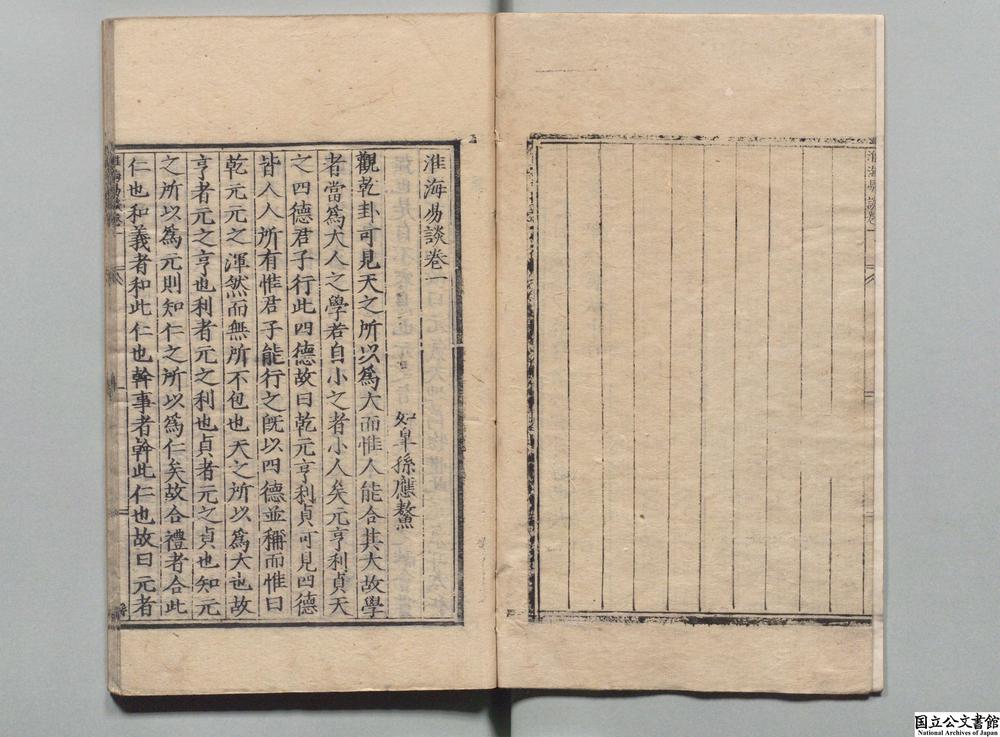 淮海易談卷一
淮海易談卷一
如皐孫應鰲
觀乾卦可見天之所以爲大而惟人能合其大故學
者當爲大人之學若自小之者小人矣元亨利貞天
之四德君子行此四德故曰乾元亨利貞可見四德
皆人人所有惟君子能行之旣以四德並稱而惟曰
乾元元之渾然而無所不包也天之所以爲大也故
亨者元之亨也利者元之利也貞者元之貞也知元
之所以爲元則知仁之所以爲仁矣故合禮者合此
仁也和義者和此仁也幹事者幹此仁也故曰元者
国立公文書館
National Archives of Japan